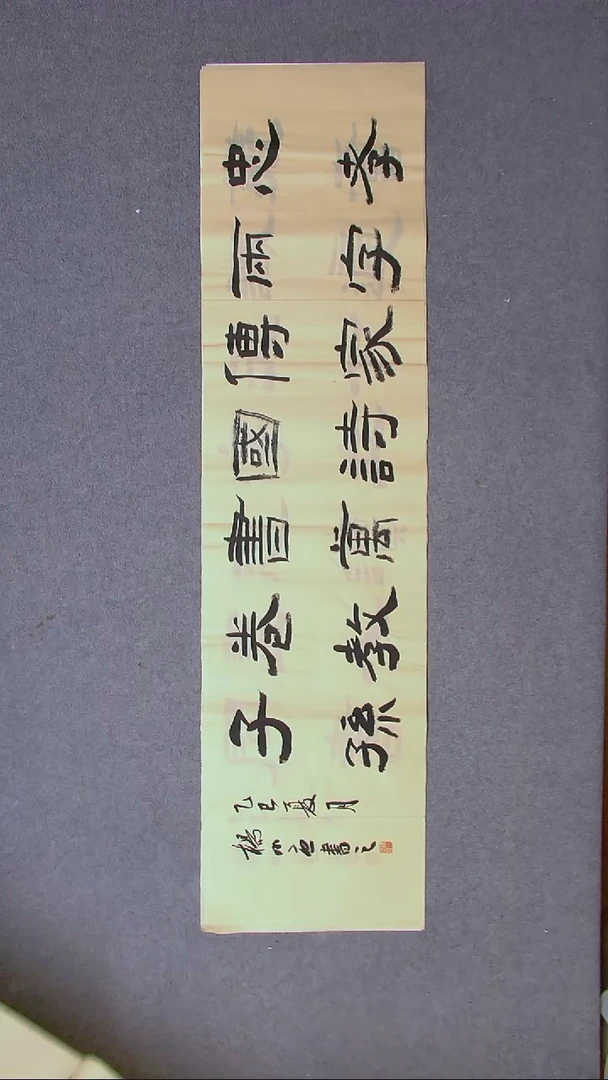 忠孝
兩字
傳家
國詩
書萬
卷教
子孫
乙巳夏月
楊書之